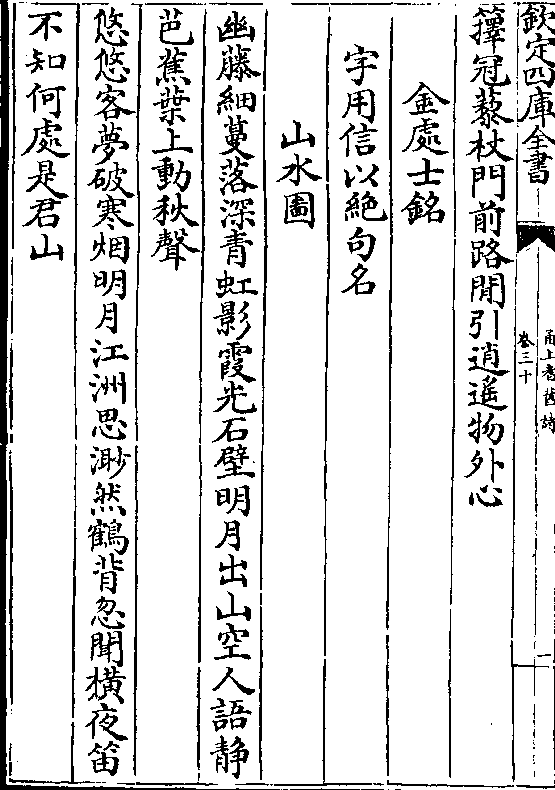 欽定四庫全書
甬上耆舊詩
卷三十
一
籜冠藜杖門前路閒引逍遙物外心
金處士銘
字用信以絶句名
山水圖
幽藤細蔓落深青虹影霞光石壁明月出山空人語静
芭蕉葉上動秋聲
悠悠客夢破寒烟明月江洲思渺然鶴背忽聞橫夜笛
不知何處是君山